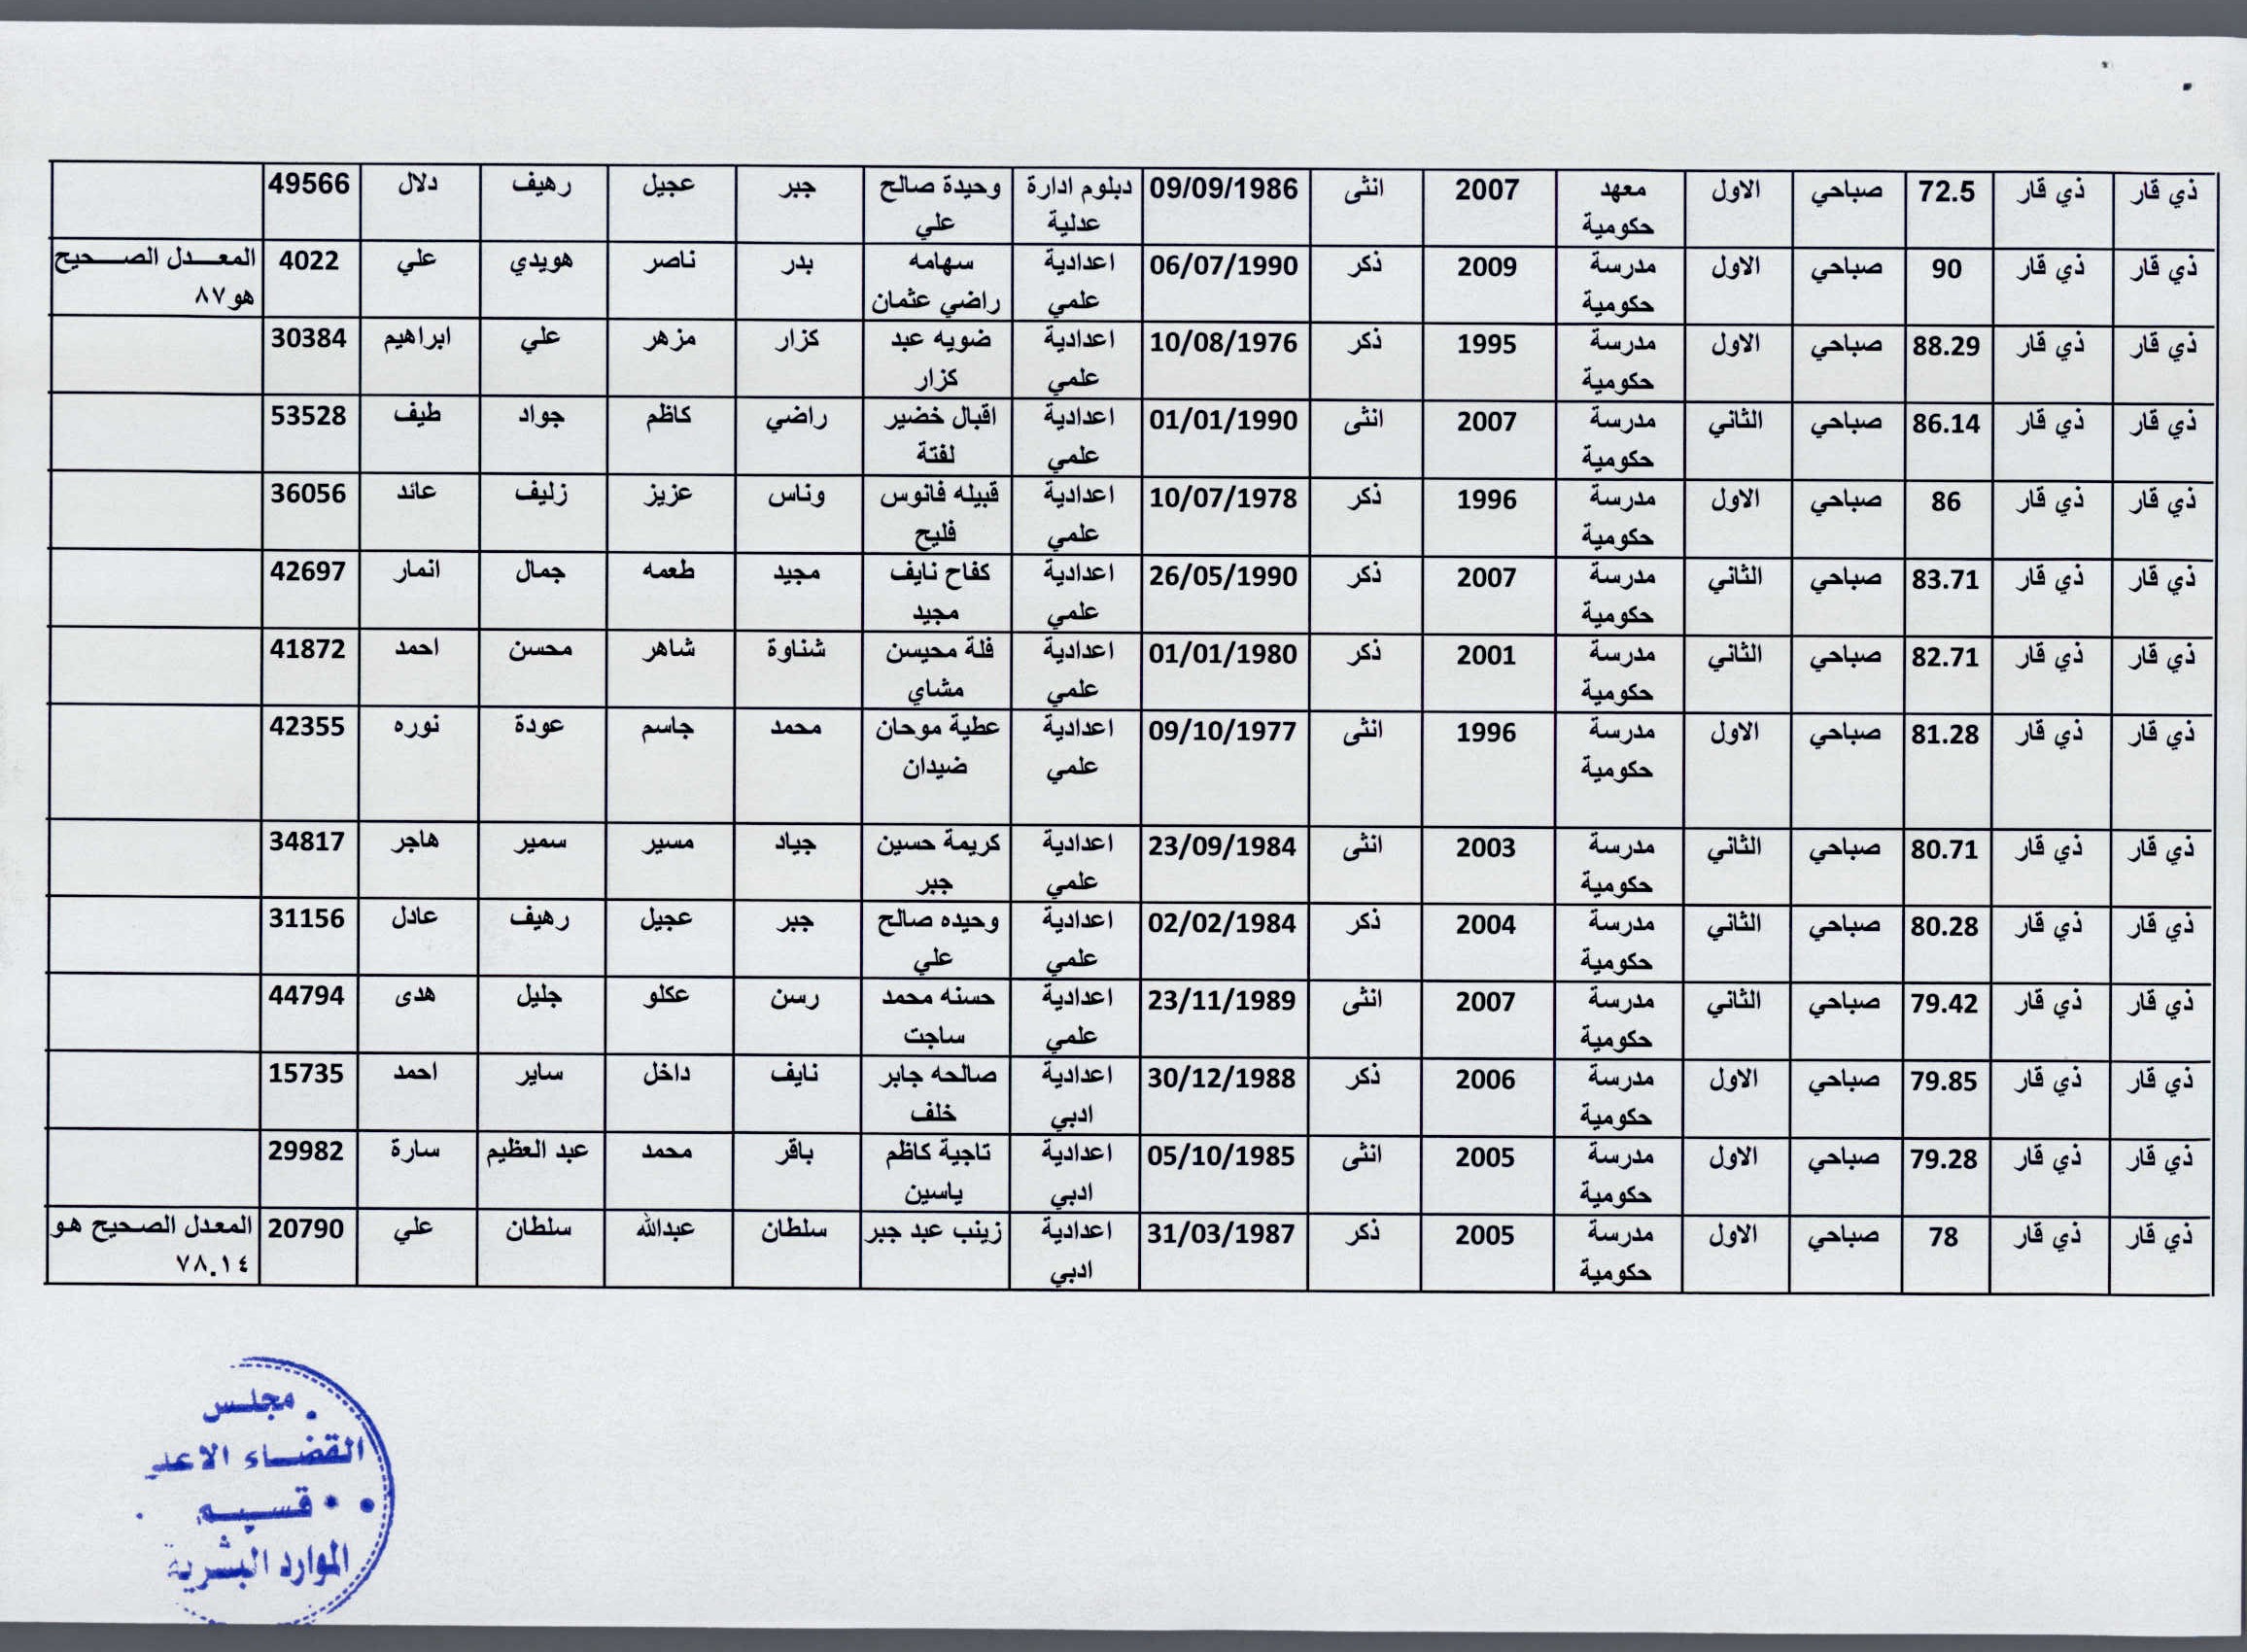 ذي قار ذي قار 72.5 صباحي الاول معهد حكومية 2007 انثى 09/09/1986 دبلوم ادارة عدلية وحيدة صالح علي جبر عجيل رهيف دلال 49566
ذي قار ذي قار 90 صباحي الاول مدرسة حكومية 2009 ذكر 06/07/1990 اعدادية علمي سهامه راضي عثمان بدر ناصر هويدي علي 4022 المعدل الصحيح هو ٨٧
ذي قار ذي قار 88.29 صباحي الاول مدرسة حكومية 1995 ذكر 10/08/1976 اعدادية علمي ضويه عبد كزار كزار مزهر علي ابراهيم 30384
ذي قار ذي قار 86.14 صباحي الثاني مدرسة حكومية 2007 انثى 01/01/1990 اعدادية علمي اقبال خضير لفتة راضي كاظم جواد طيف 53528
ذي قار ذي قار 86 صباحي الاول مدرسة حكومية 1996 ذكر 10/07/1978 اعدادية علمي قبيله فانوس فليح وناس عزيز زليف عائد 36056
ذي قار ذي قار 83.71 صباحي الثاني مدرسة حكومية 2007 ذكر 26/05/1990 اعدادية علمي كفاح نايف مجيد مجيد طعمه جمال انمار 42697
ذي قار ذي قار 82.71 صباحي الثاني مدرسة حكومية 2001 ذكر 01/01/1980 اعدادية علمي فلة محيسن مشاي شناوة شاهر محسن احمد 41872
ذي قار ذي قار 81.28 صباحي الاول مدرسة حكومية 1996 انثى 09/10/1977 اعدادية علمي عطية موحان ضيدان محمد جاسم عودة نوره 42355
ذي قار ذي قار 80.71 صباحي الثاني مدرسة حكومية 2003 انثى 23/09/1984 اعدادية علمي كريمة حسين جبر جياد مسير سمير هاجر 34817
ذي قار ذي قار 80.28 صباحي الثاني مدرسة حكومية 2004 ذكر 02/02/1984 اعدادية علمي وحيده صالح علي جبر عجيل رهيف عادل 31156
ذي قار ذي قار 79.42 صباحي الثاني مدرسة حكومية 2007 انثى 23/11/1989 اعدادية علمي حسنه محمد ساجت رسن عكلو جليل هدى 44794
ذي قار ذي قار 79.85 صباحي الاول مدرسة حكومية 2006 ذكر 30/12/1988 اعدادية ادبي صالحه جابر خلف نايف داخل ساير احمد 15735
ذي قار ذي قار 79.28 صباحي الاول مدرسة حكومية 2005 انثى 05/10/1985 اعدادية ادبي تاجية كاظم ياسين باقر محمد عبد العظيم سارة 29982
ذي قار ذي قار 78 صباحي الاول مدرسة حكومية 2005 ذكر 31/03/1987 اعدادية ادبي زينب عبد جبر سلطان عبدالله سلطان علي 20790 المعدل الصحيح هو ٧٨.١٤
مجلس
القضاء
قسم
الموارد البشرية